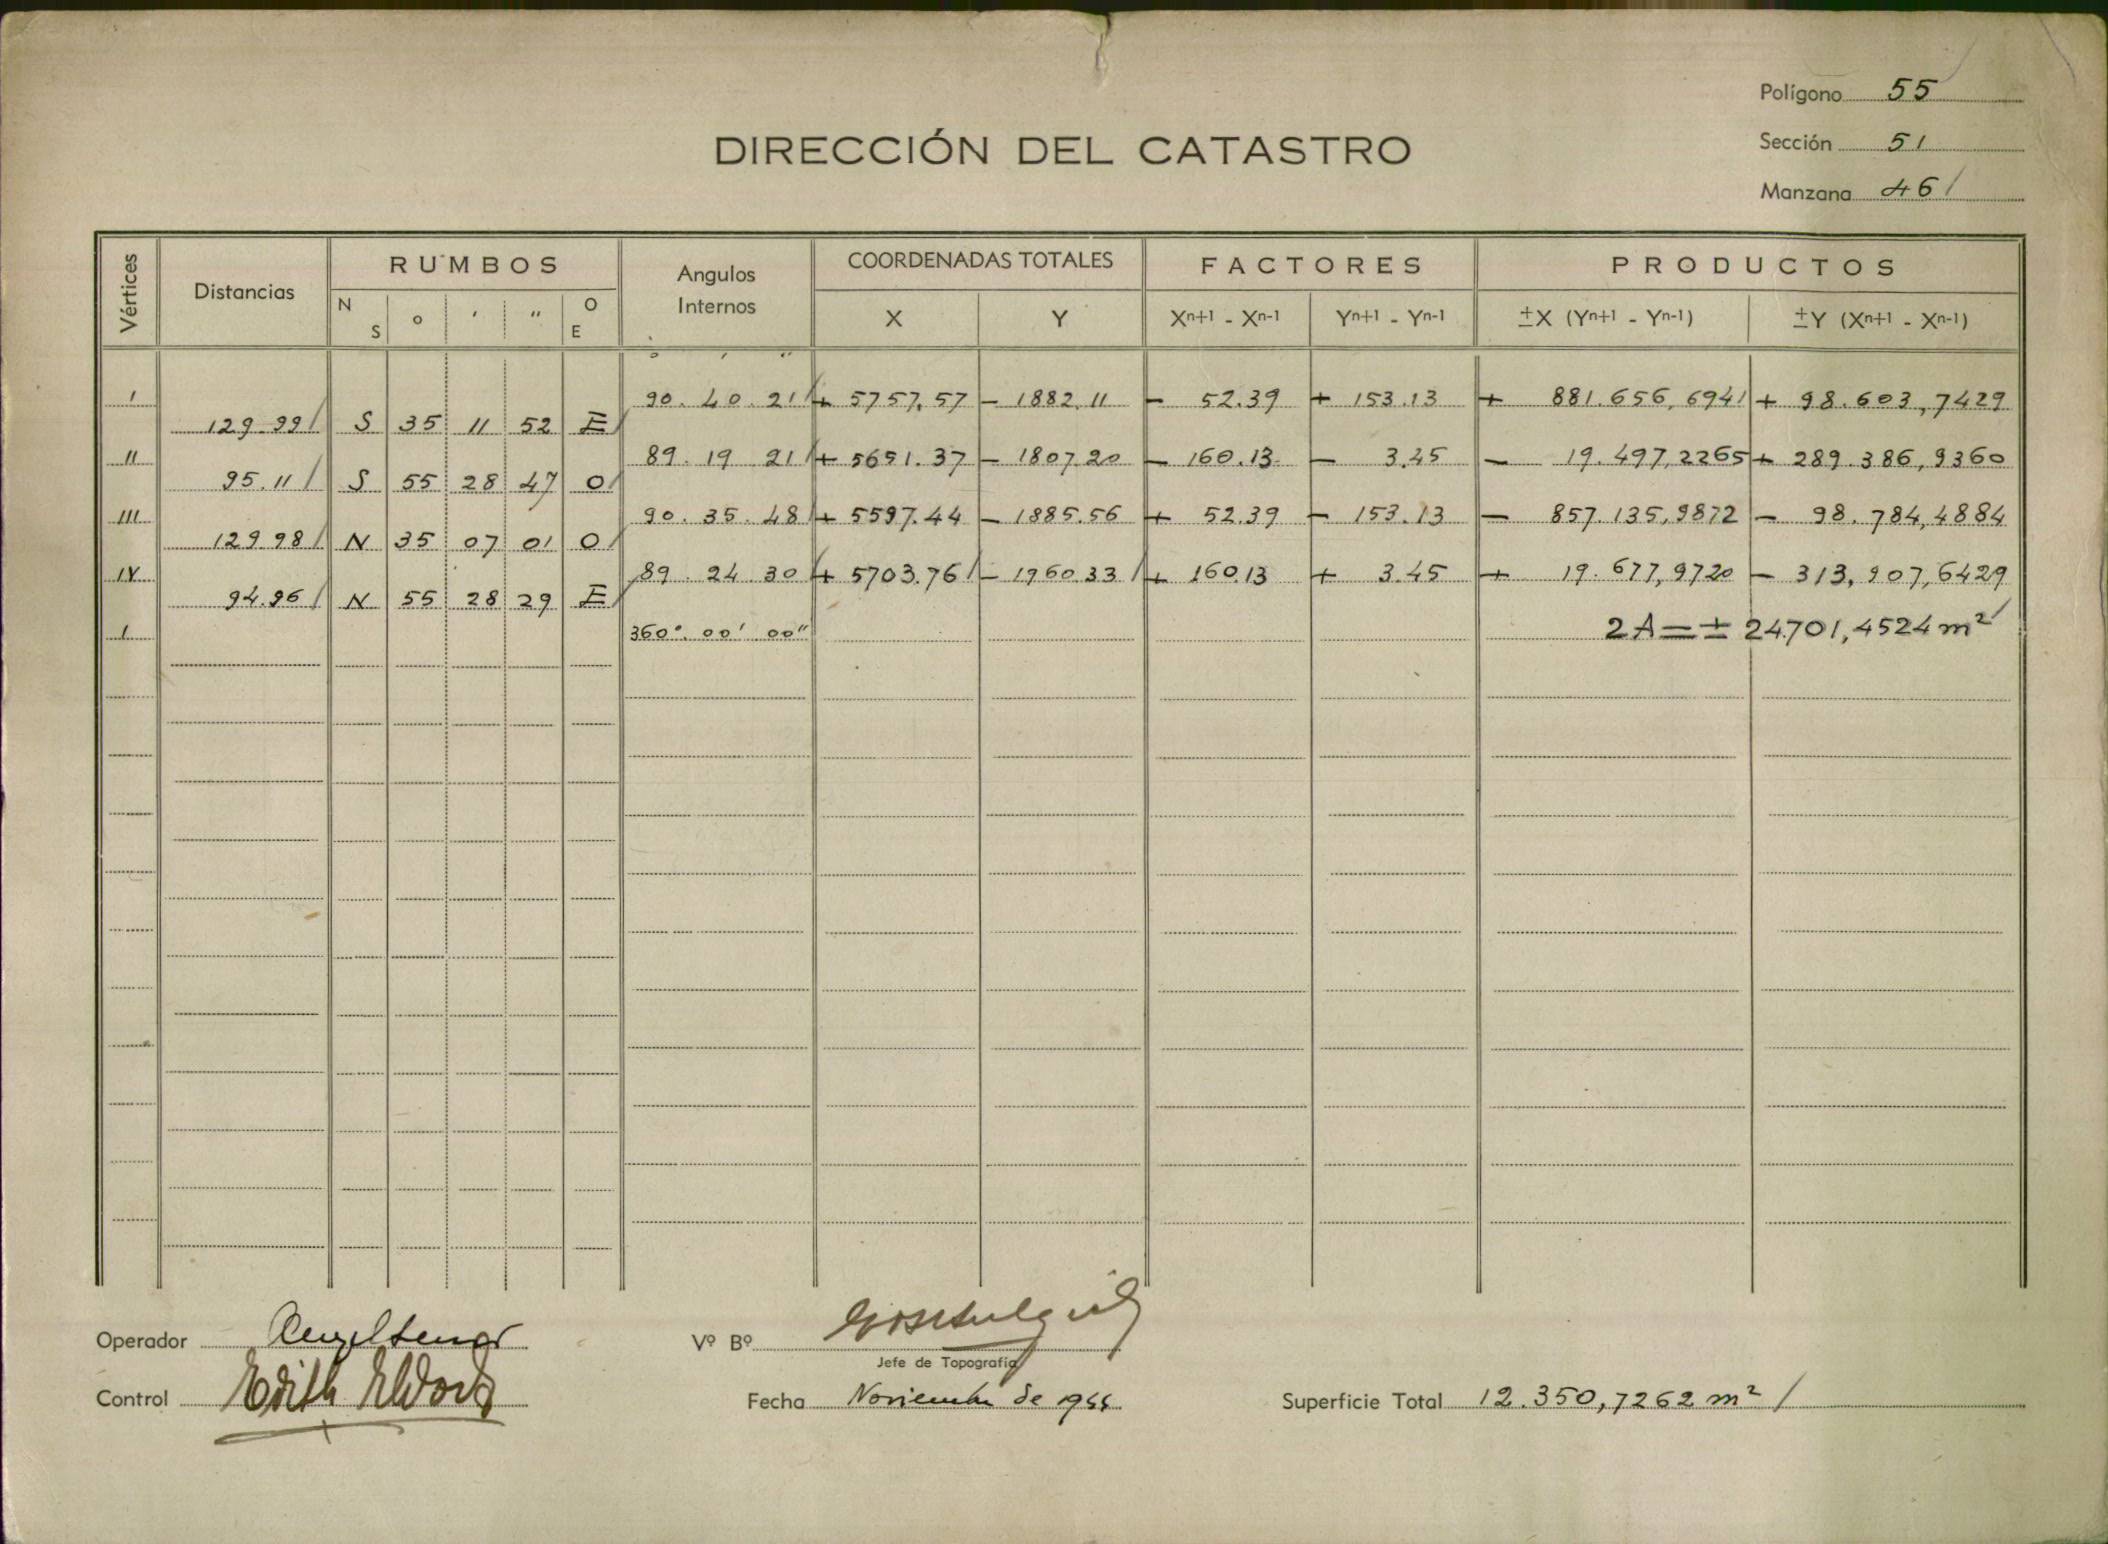 Polígono 55
DIRECCIÓN DEL CATASTRO
Sección 51
Manzana 46
Vértices Distancias RUMBOS Angulos Internos COORDENADAS TOTALES FACTORES PRODUCTOS
N S ° ' " O E X Y Xn+1 - Xn-1 Yn+1 - Yn-1 ±X (Yn+1 - Yn-1) ±Y (Xn+1 - Xn-1)
° ' "
I 90. 40. 21 + 5757,57 - 1882,11 - 52.39 + 153.13 + 881.656,6941 + 98.603,7429
129.99 S 35 11 52 E
II 89. 19 21 + 5651.37 - 1807.20 - 160.13 - 3.45 - 19.497,2265 + 289.386,9360
95.11 S 55 28 47 O
III 90. 35. 48 + 5597.44 - 1885.56 + 52.39 - 153.13 - 857.135,9872 - 98.784,4884
129.98 N 35 07 01 O
IV 89. 24 30 + 5703.76 - 1960.33 + 160.13 + 3.45 + 19.677,9720 - 313,907,6429
94.96 N 55 28 29 E
I 360°. 00' 00" 2A = ± 24.701,4524 m²
Operador
Vº Bº
Jefe de Topografía
Control Edith
Fecha Noviembre de 1944
Superficie Total 12.350,7262 m²